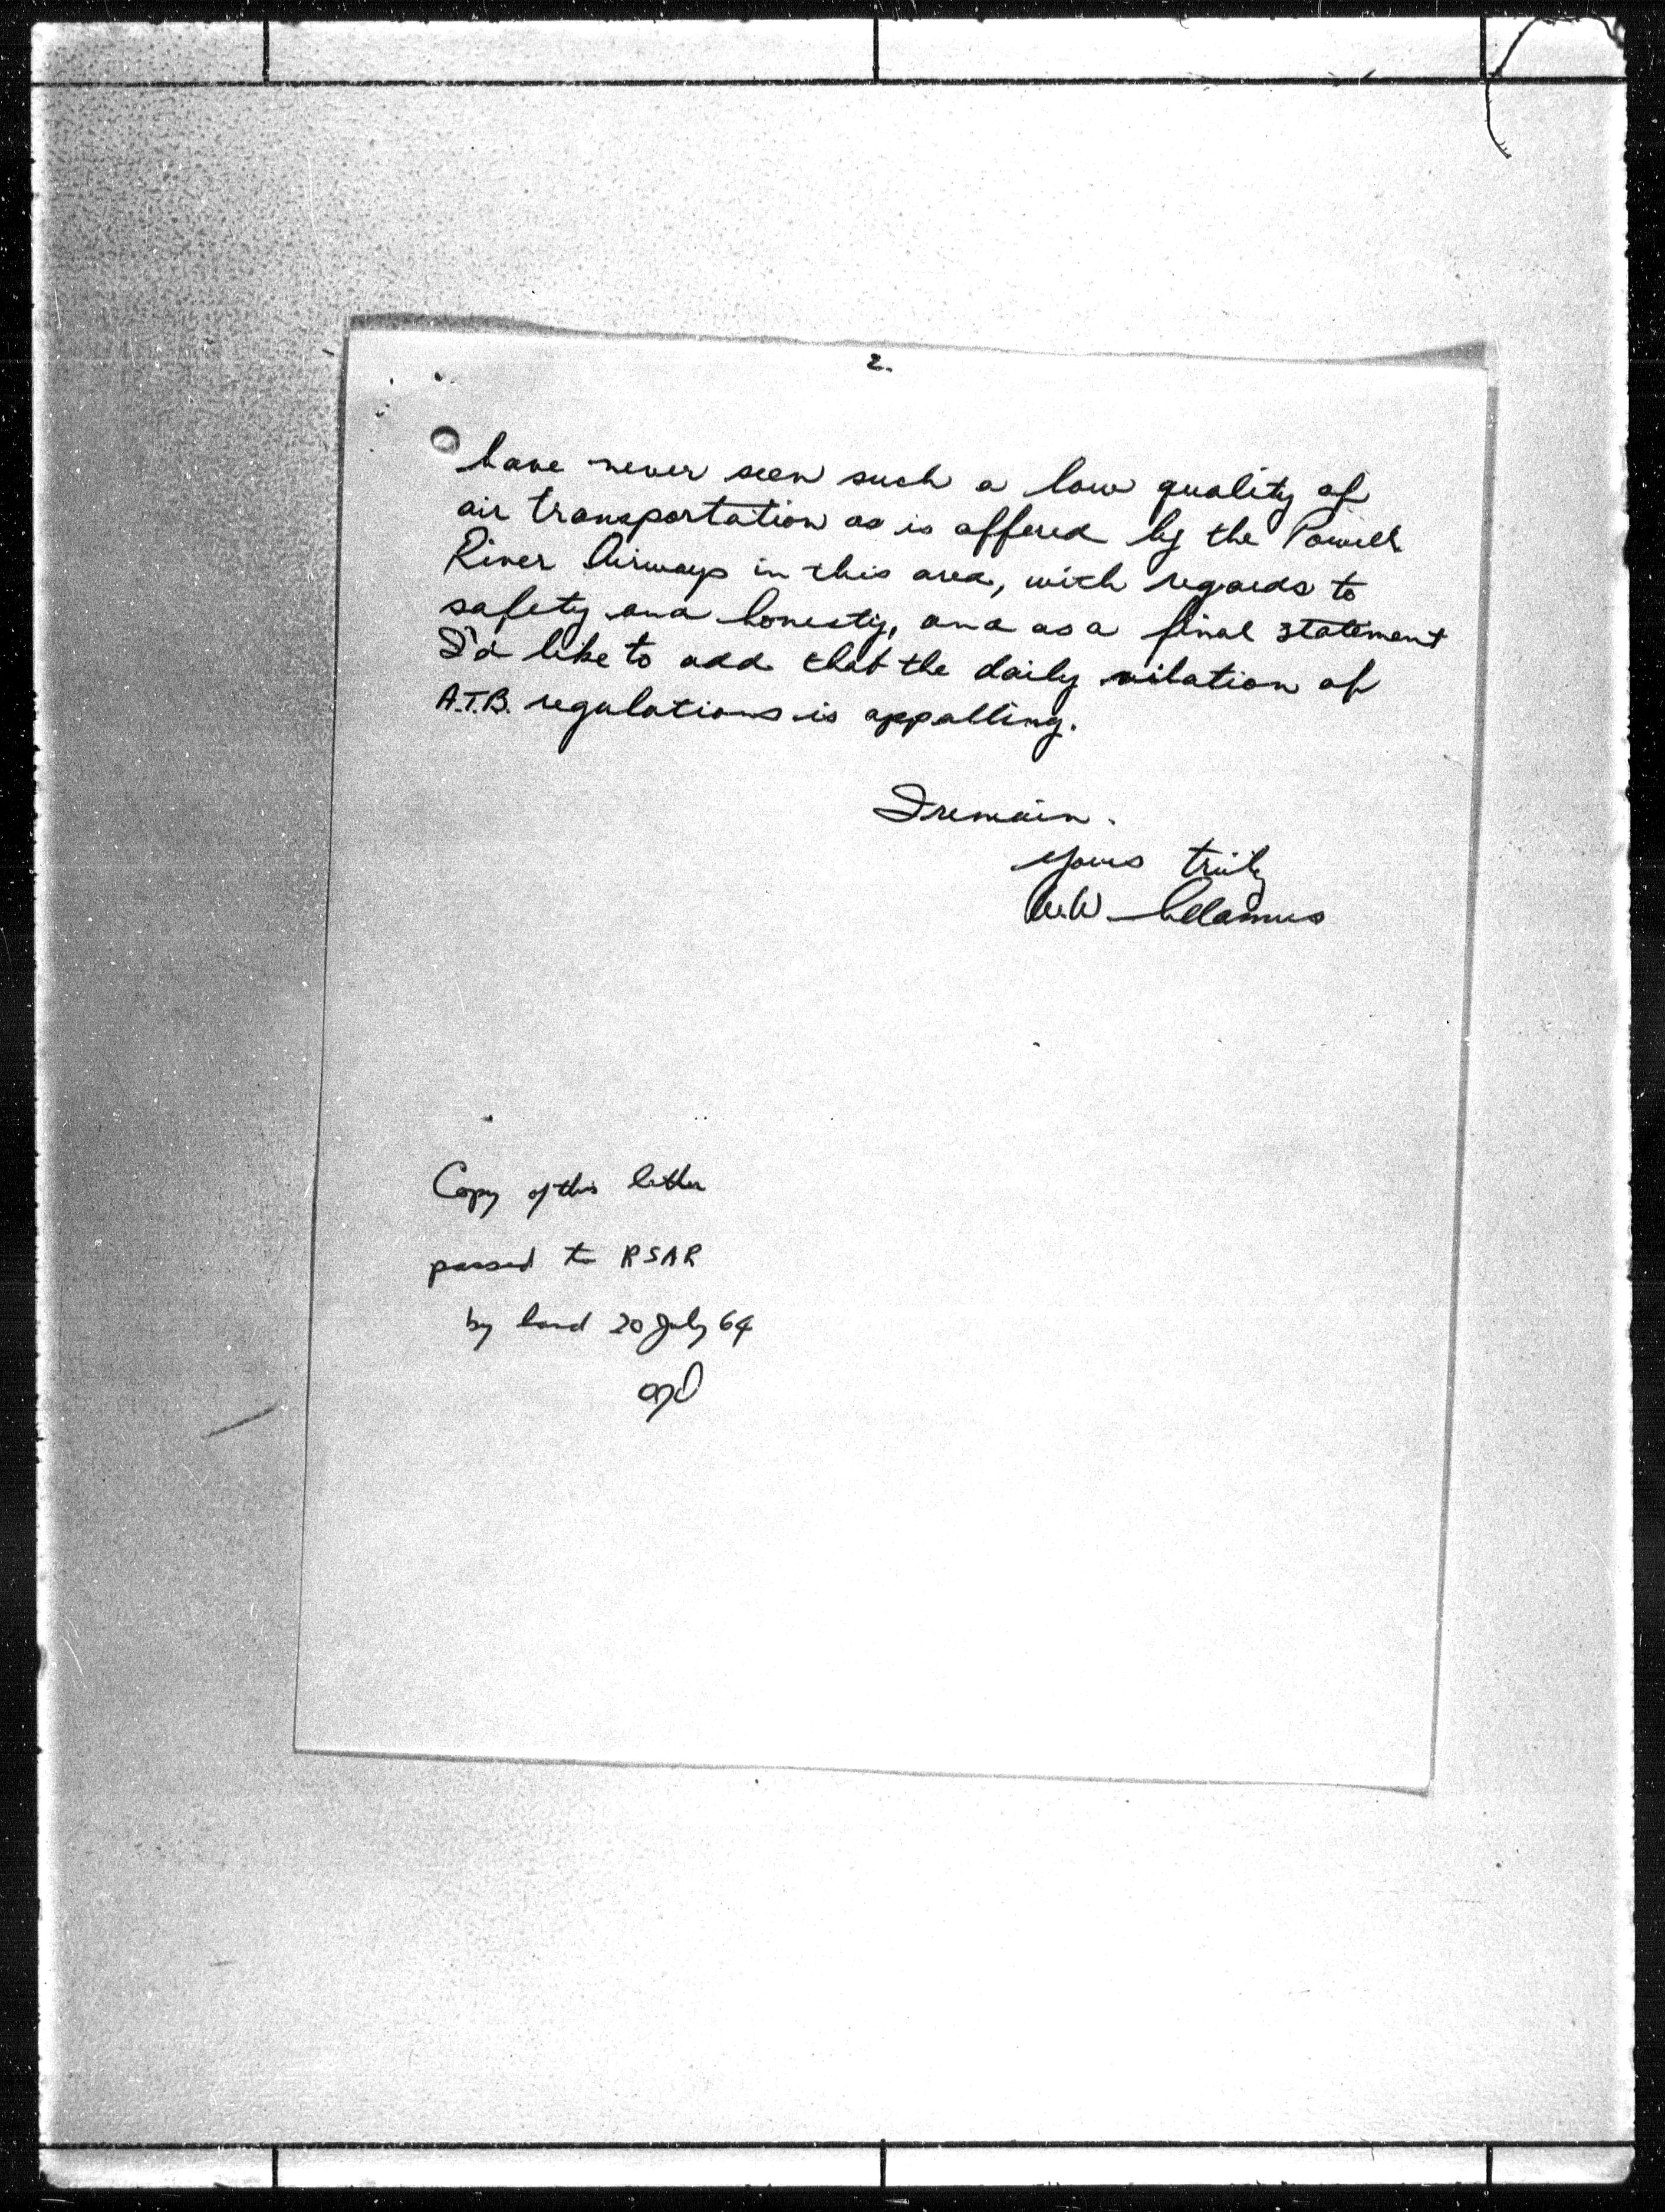 2.
have never seen such a low quality of
air transportation as is offered by the Powell
River Airways in this area, with regards to
safety and honesty, and as a final statement
I'd like to add that the daily vilation of
A.T.B. regulations is appalling.
I remain.
yours truly
W.W.
Copy of this letter
passed to RSAR
by hand 20 July 64